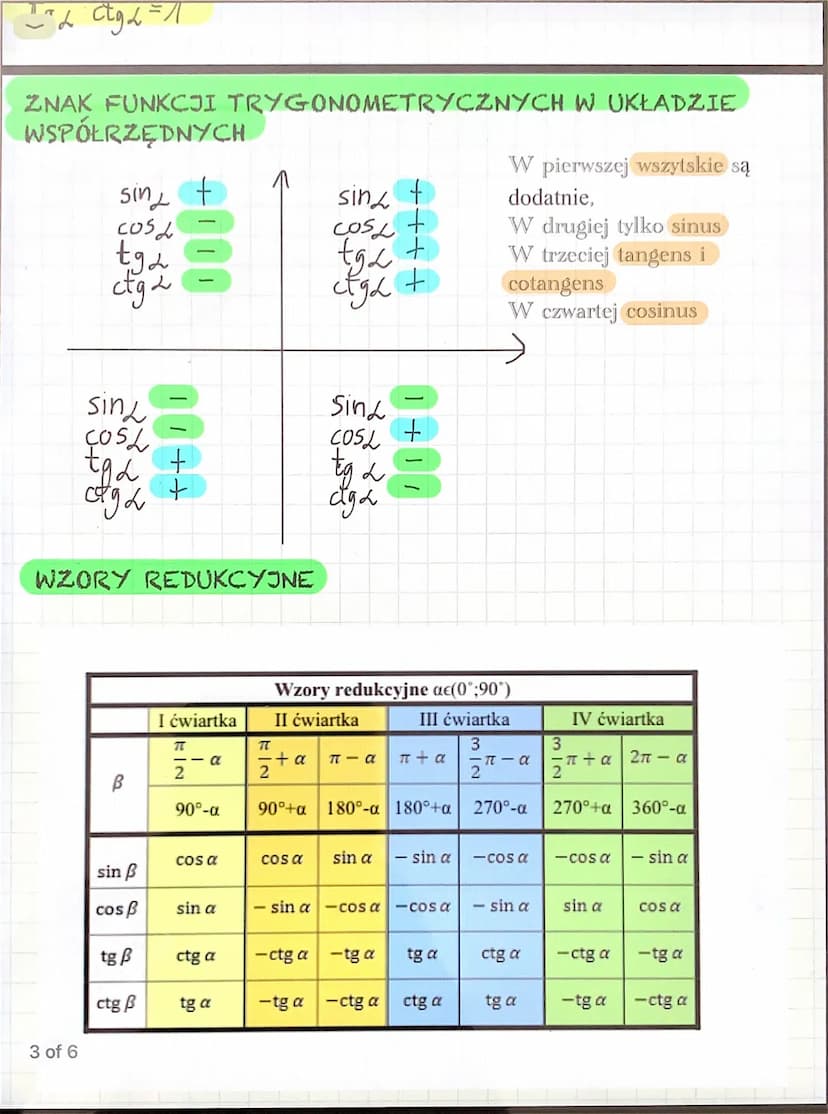 tgα ctgα=1
ZNAK FUNKCJI TRYGONOMETRYCZNYCH W UKŁADZIE
WSPÓŁRZĘDNYCH
sinα +
cosα −
tgα −
ctgα −
sinα +
cosα +
tgα +
ctgα +
W pierwszej wszytskie są
dodatnie,
W drugiej tylko sinus
W trzeciej tangens i
cotangens
W czwartej cosinus
sinα −
cosα −
tgα +
ctgα +
sinα −
cosα +
tgα −
ctgα −
WZORY REDUKCYJNE
Wzory redukcyjne αϵ(0°;90°)
I ćwiartka II ćwiartka III ćwiartka IV ćwiartka
β π/2 − α π/2 + α π − α π + α 3/2 π − α 3/2 π + α 2π − α
90°-α 90°+α 180°-α 180°+α 270°-α 270°+α 360°-α
sin β cos α cos α sin α − sin α −cos α −cos α − sin α
cos β sin α − sin α −cos α −cos α − sin α sin α cos α
tg β ctg α −ctg α −tg α tg α ctg α −ctg α −tg α
ctg β tg α −tg α −ctg α ctg α tg α −tg α −ctg α
3 of 6